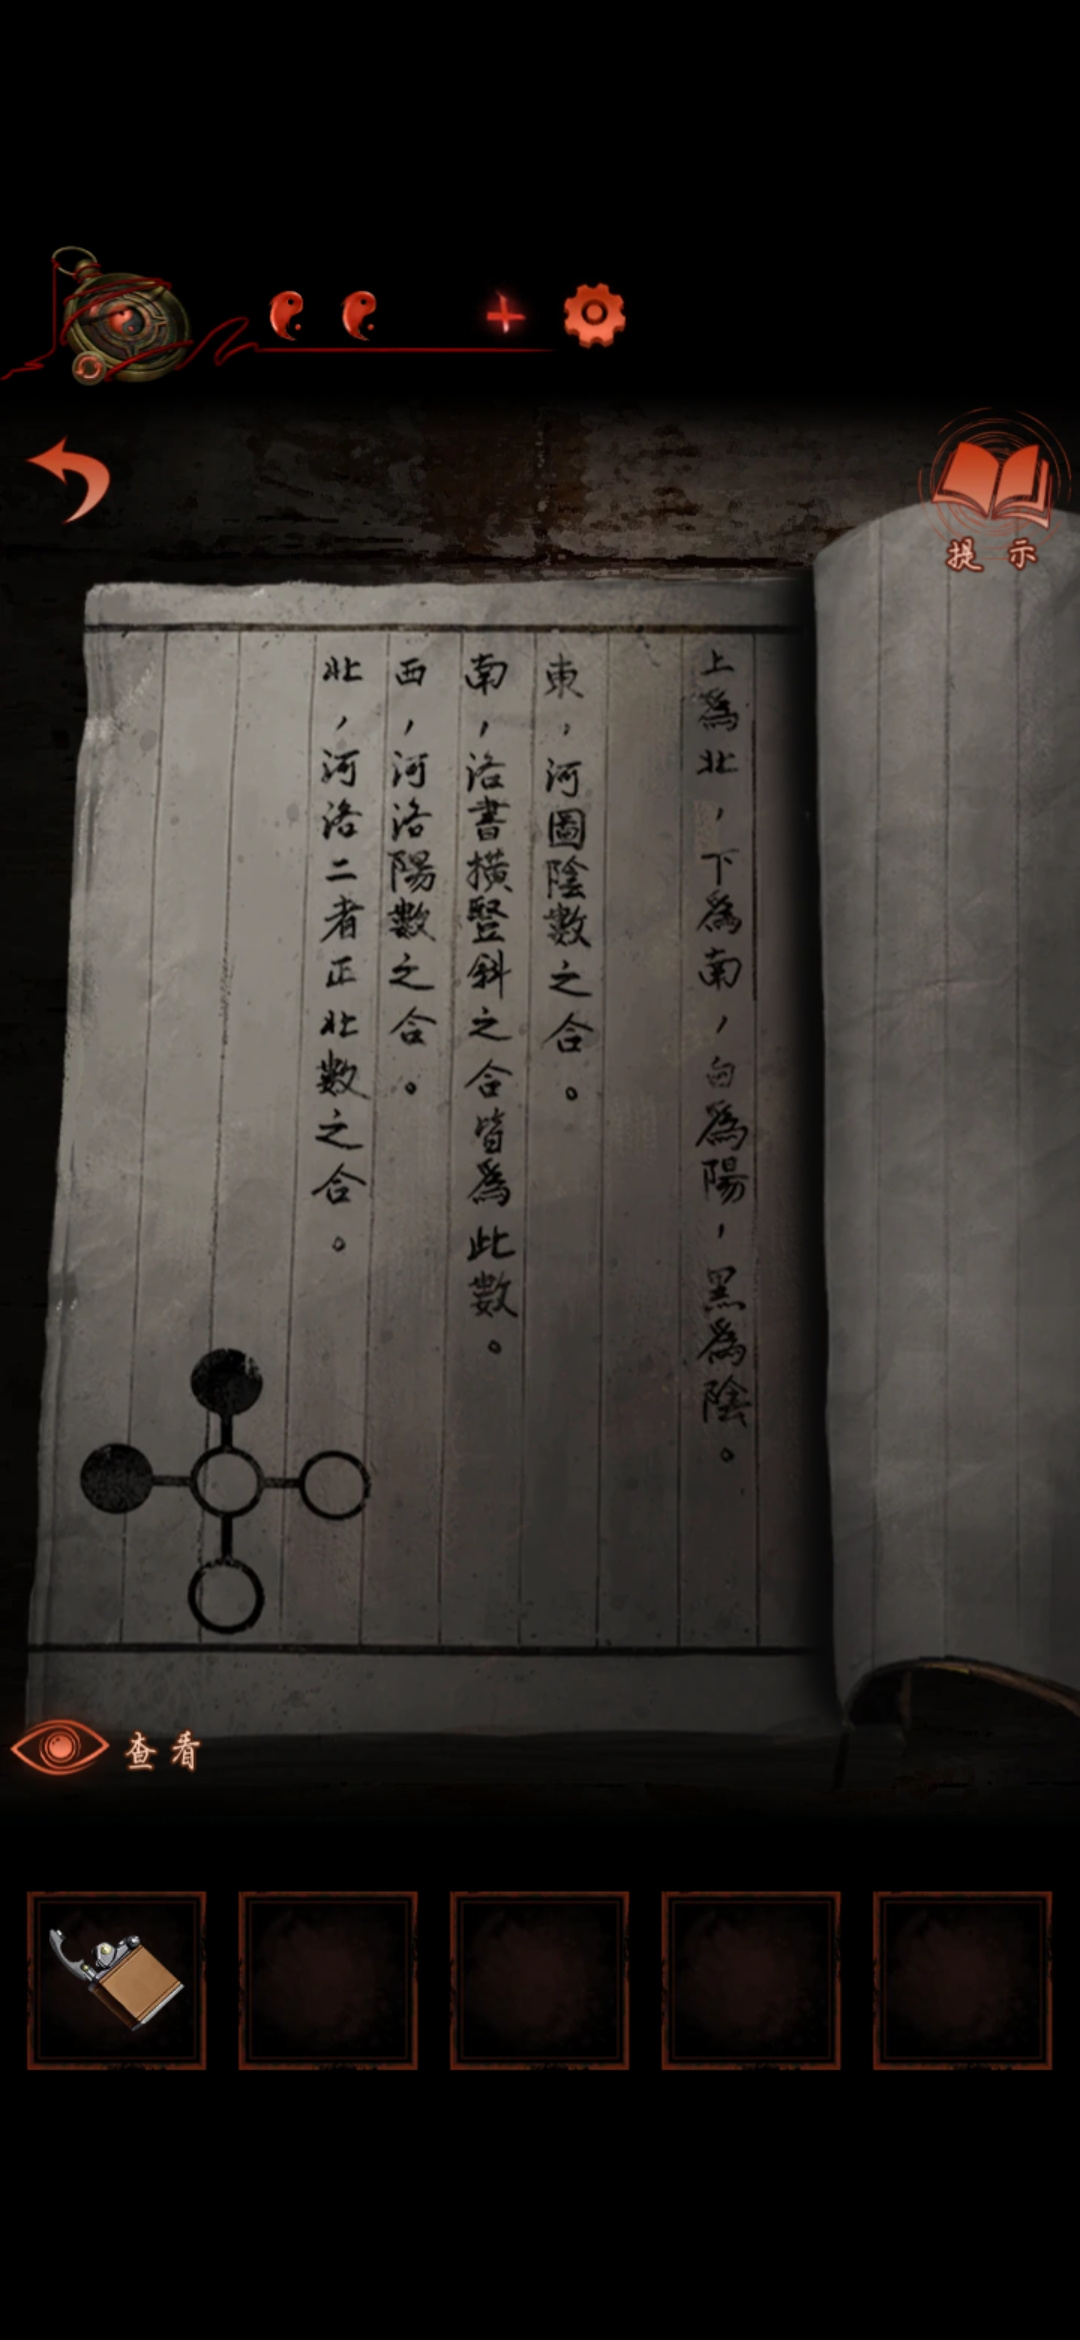 提示
上爲北，下爲南，白爲陽，黑爲陰。
東，河圖陰數之合。
南，洛書橫豎斜之合皆爲此數。
西，河洛陽數之合。
北，河洛二者正北數之合。
查看